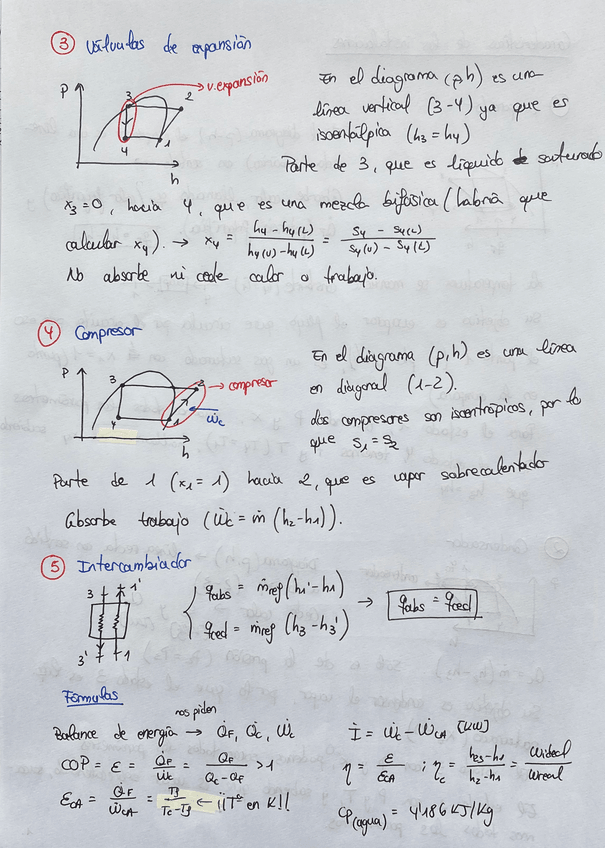 ③ Válvulas de expansión
P
3
2
→ v. expansión
4
1
h
En el diagrama (p,h) es una
línea vertical (3-4) ya que es
isoentálpica (h3 = h4)
Parte de 3, que es líquido saturado
x3=0, hacia 4, que es una mezcla bifásica (habrá que
calcular x4). → x4 = (h4 - h4(L)) / (h4(V) - h4(L)) = (s4 - s4(L)) / (s4(V) - s4(L))
No absorbe ni cede calor o trabajo.
④ Compresor
P
3
2
→ compresor
Ẇc
4
1
h
En el diagrama (p,h) es una línea
en diagonal (1-2).
Los compresores son isoentrópicos, por lo
que s1 = s2
Parte de 1 (x1 = 1) hacia 2, que es vapor sobrecalentado
Absorbe trabajo (Ẇc = ṁ (h2-h1)).
⑤ Intercambiador
3
1'
3'
1
q̇abs = ṁref (h1' - h1)
q̇ced = ṁref (h3 - h3')
→ q̇abs = q̇ced
Fórmulas
nos piden
Balance de energía → Q̇F, Q̇c, Ẇc
COP = ε = Q̇F / Ẇc = Q̇F / (Q̇c - Q̇F) > 1
εCA = Q̇F / ẆCA = Tf / (Tc - Tf) ← ¡¡Tª en K!!
İ = Ẇc - ẆCA [KW]
η = ε / εCA ; ηc = (h2s - h1) / (h2 - h1) = Wideal / Wreal
cp(agua) = 4'186 KJ/Kg